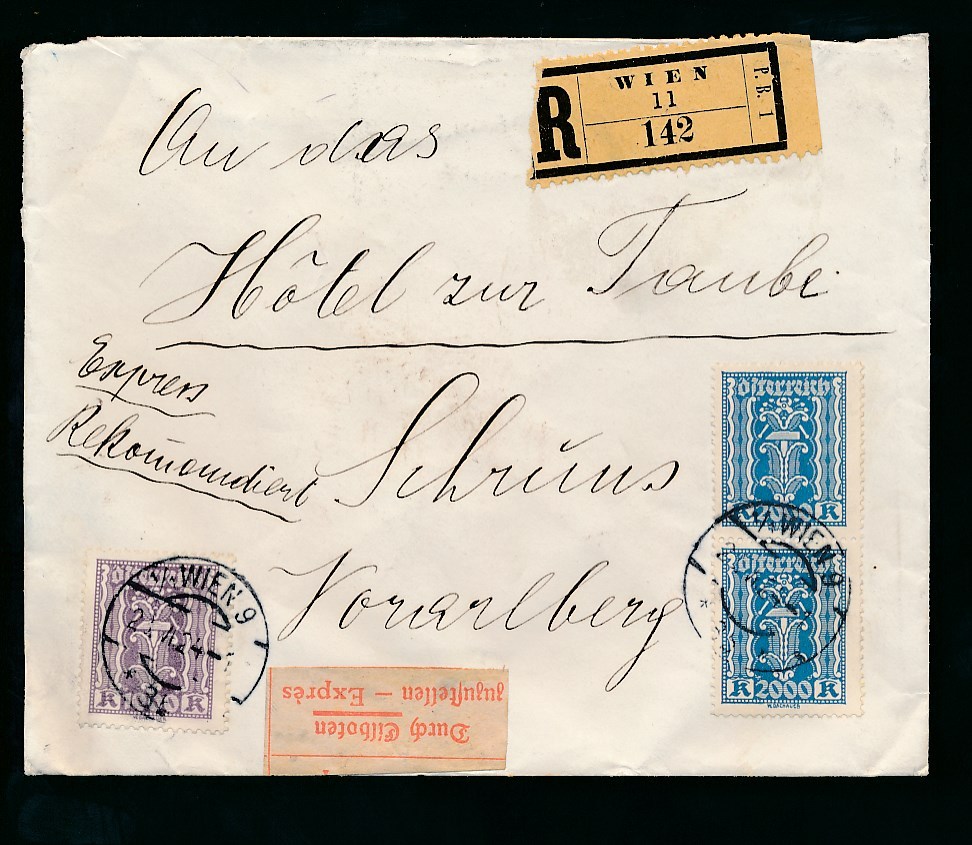 WIEN
11
142
R
P.B. 1
An das
Hôtel zur Taube
Express
Rekomandiert
Schruns
Vorarlberg
Österreich
K 2000 K
1/1 WIEN 9
Österreich
K 2000 K
W.DACHAUER
1/1 WIEN 9
K
K
Durch Eilboten
zuzustellen – Exprès